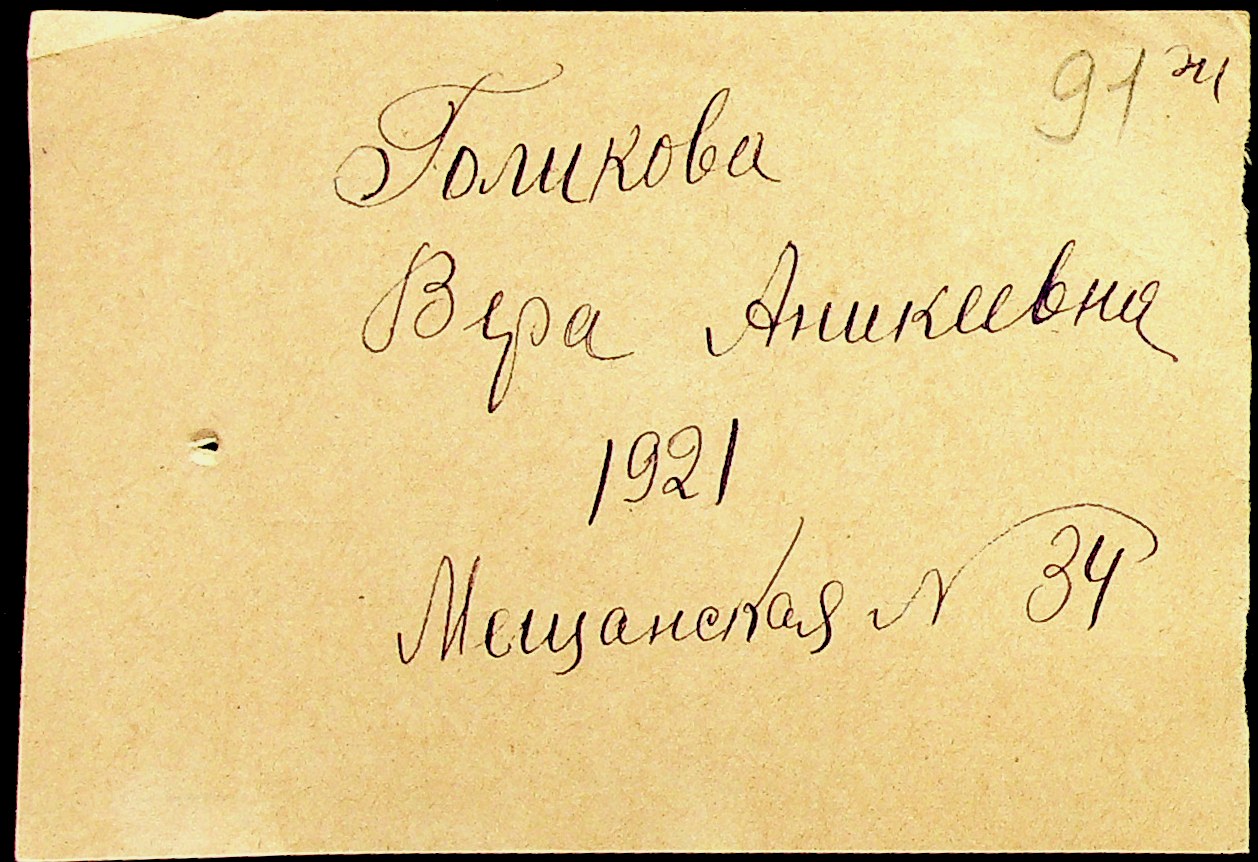 91 ж
Голикова
Вера Аникеевна
1921
Мещанская N 34